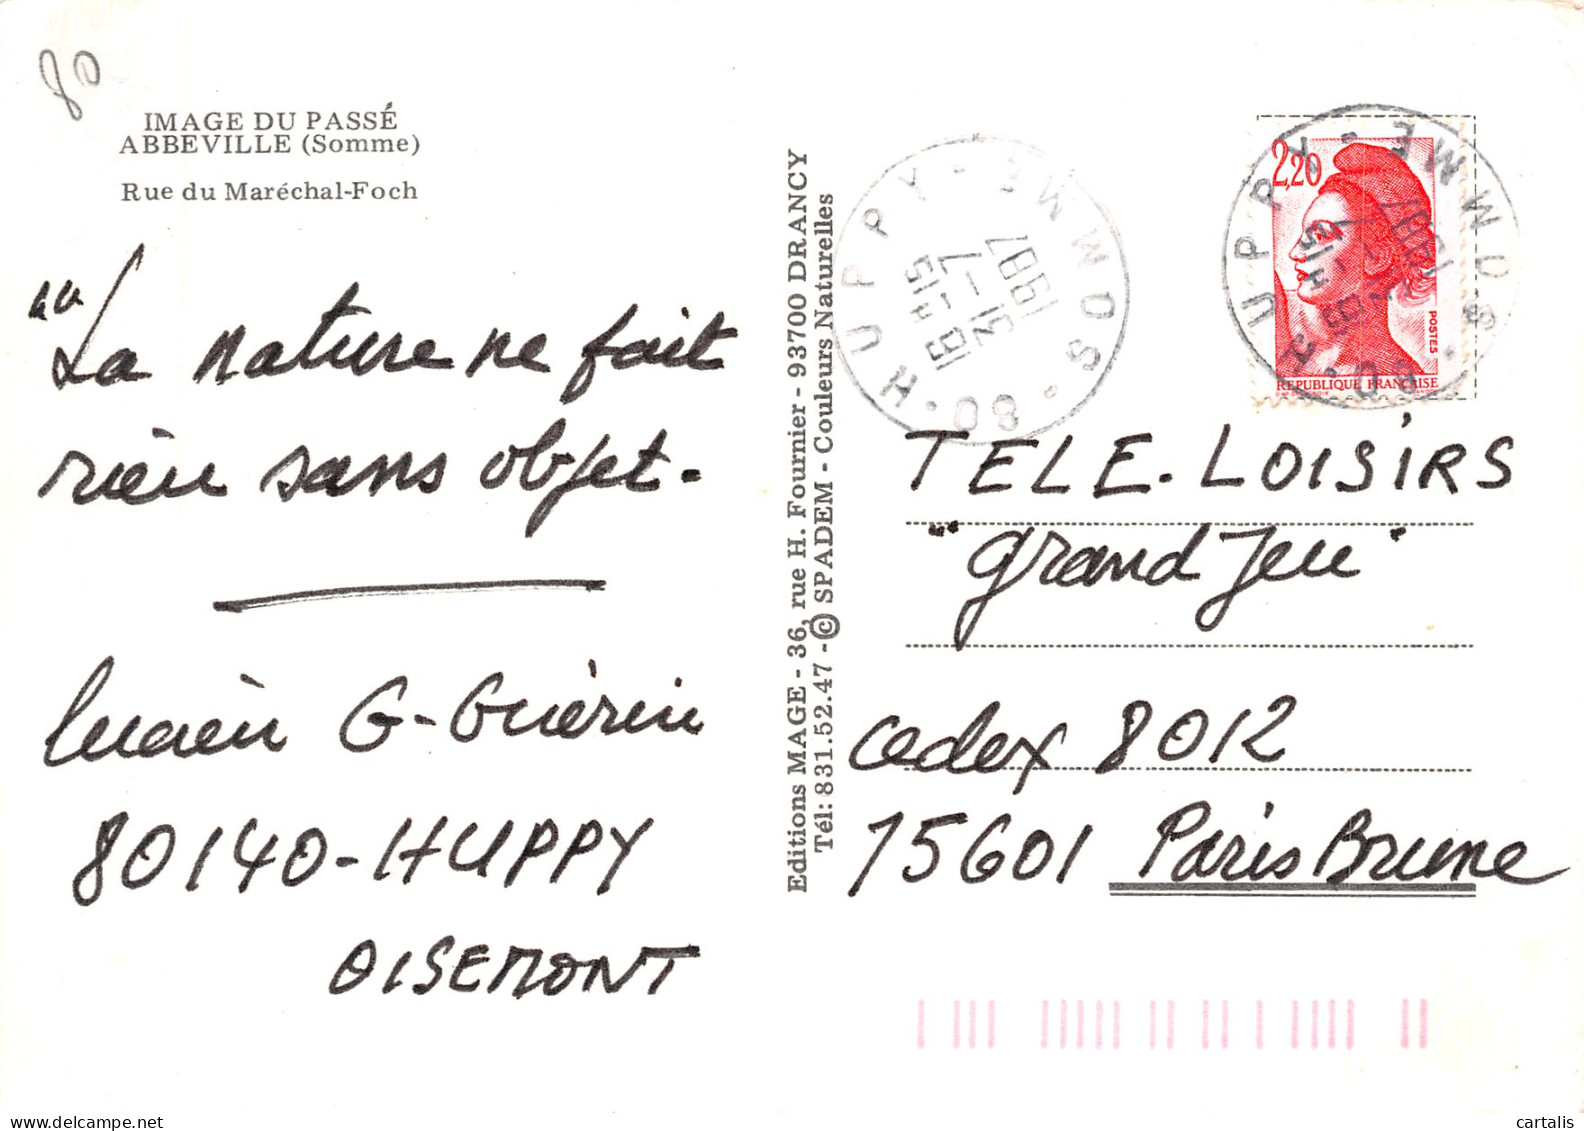 80
IMAGE DU PASSÉ
ABBEVILLE (Somme)
Rue du Maréchal-Foch
"La nature ne fait
rien sans objet.
Lucien G-Guérin
80140-HUPPY
OISEMONT
Editions MAGE - 36, rue H. Fournier - 93700 DRANCY
Tél: 831.52.47 - © SPADEM - Couleurs Naturelles
80 · HUPPY - SOMME ·
19H15
3-7
1987
2,20
POSTES
REPUBLIQUE FRANÇAISE
80 · HUPPY - SOMME ·
1987
TELE-LOISIRS
"Grand Jeu"
cedex 8012
75601 Paris Brune
cartalis